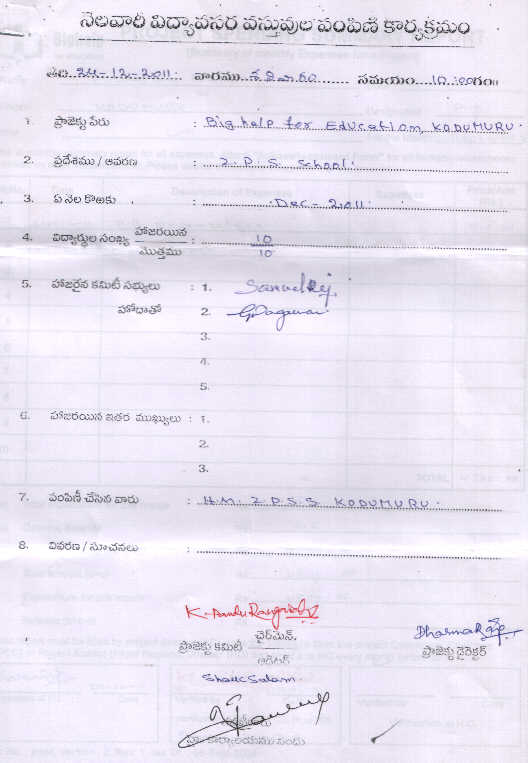 నెలవారీ విద్యావసర వస్తువుల పంపిణీ కార్యక్రమం
తేది 24-12-2011 వారము శనివారం సమయం 10:00గం॥
1. ప్రాజెక్టు పేరు : Big help for Education, KODUMURU.
2. ప్రదేశము / ఆవరణ : Z. P. S. School.
3. ఏ నెల కొఱకు : Dec - 2011.
4. విద్యార్థుల సంఖ్య హాజరయిన : 10
మొత్తము 10
5. హాజరైన కమిటీ సభ్యులు : 1.
హోదాతో 2.
3.
4.
5.
6. హాజరయిన ఇతర ముఖ్యులు : 1.
2.
3.
7. పంపిణీ చేసిన వారు : H.M. Z P.S.S KODUMURU.
8. వివరణ / సూచనలు :
ప్రాజెక్టు కమిటీ ఛైర్‌మేన్.
ఆడిటర్
ప్రాజెక్టు డైరెక్టర్
Shaik Salam